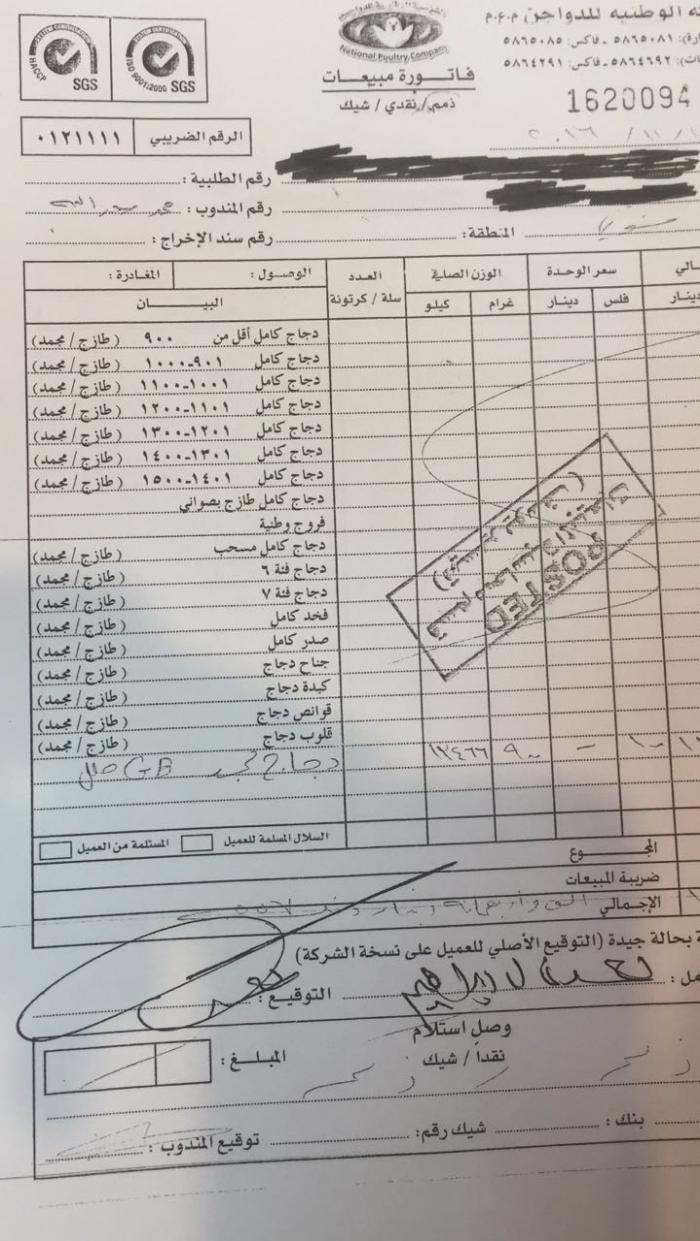 ه الوطنيه للدواجن م.ع.م
رة): ٥٨٦٥٠٨١ ـ فاكس: ٥٨٦٥٠٨٥
ات): ٥٨٦٤٦٩٢ـ فاكس: ٥٨٦٤٢٩١
National Poultry Company
HACCP SGS
ISO 9001:2000 SGS
فاتورة مبيعات
ذمم/ نقدي/ شيك
1620094
الرقم الضريبي ٠١٢١١١١
رقم الطلبية :
رقم المندوب :
المنطقة:
رقم سند الإخراج :
الوصول : المغادرة :
البيـــــان
العدد سلة / كرتونة
الوزن الصافي غرام كيلو
سعر الوحدة فلس دينار
الي دينار
دجاج كامل أقل من ٩٠٠ (طازج / مجمد)
دجاج كامل ٩٠١-١٠٠٠ (طازج / مجمد)
دجاج كامل ١٠٠١-١١٠٠ (طازج / مجمد)
دجاج كامل ١١٠١-١٢٠٠ (طازج / مجمد)
دجاج كامل ١٢٠١-١٣٠٠ (طازج / مجمد)
دجاج كامل ١٣٠١-١٤٠٠ (طازج / مجمد)
دجاج كامل ١٤٠١-١٥٠٠ (طازج / مجمد)
دجاج كامل طازج بصواني
فروج وطنية
دجاج كامل مسحب (طازج / مجمد)
دجاج فئة ٦ (طازج / مجمد)
دجاج فئة ٧ (طازج / مجمد)
فخد كامل (طازج / مجمد)
صدر كامل (طازج / مجمد)
جناح دجاج (طازج / مجمد)
كبدة دجاج (طازج / مجمد)
قوانص دجاج (طازج / مجمد)
قلوب دجاج (طازج / مجمد)
دجاج مجمد GB ١٢٤٦٦ ٩٠٠
POSTED
السلال المسلمة للعميل المستلمة من العميل
المجـــوع
ضريبة المبيعات
الإجمالي
ة بحالة جيدة (التوقيع الأصلي للعميل على نسخة الشركة)
مل : التوقيع :
وصل استلام
نقداً / شيك المبلـــغ :
بنك : شيك رقم: توقيع المندوب :